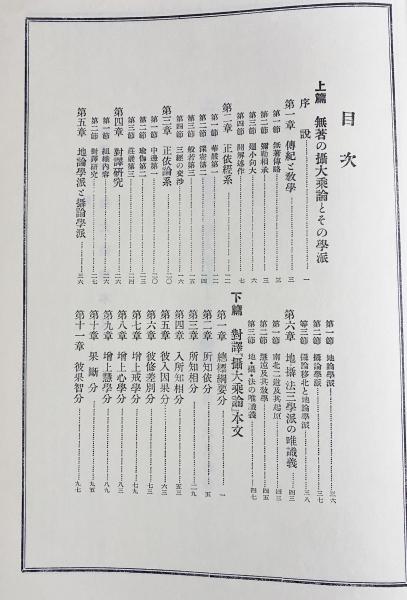 目次
上篇 無著の攝大乘論とその學派
序說……一
第一章 傳紀と敎學……三
第一節 無著傳略……三
第二節 彌勒相承……
第三節 廻小向大……六
第四節 開解述作……七
第二章 正依經系……
第一節 華嚴第一……
第二節 深密第二……一四
第三節 般若第三……一五
第四節 三經の交涉……一六
第三章 正依論系……二〇
第一節 中邊第一……二〇
第二節 瑜伽第二……
第三節 莊嚴第三……二四
第四章 對譯硏究……二六
第一節 組織內容……二六
第二節 對譯硏究……二七
第五章 地論學派と攝論學派……三六
第一節 地論學派……三六
第二節 攝論學派……三七
第三節 攝論移北と地論學派……三八
第六章 地攝法三學派の唯識義……四三
第一節 南北二道及其起原……四三
第二節 慧遠及其敎學……四五
第三節 地・攝・法の唯識義……四七
下篇 對譯『攝大乘論』本文
第一章 總標綱要分……一
第二章 所知依分……五
第三章 所知相分……二九
第四章 入所知相分……五三
第五章 彼入因果分……六三
第六章 彼修差別分……七三
第七章 增上戒學分……七九
第八章 增上心學分……八三
第九章 增上慧學分……八九
第十章 果斷分……九五
第十一章 彼果智分……九七